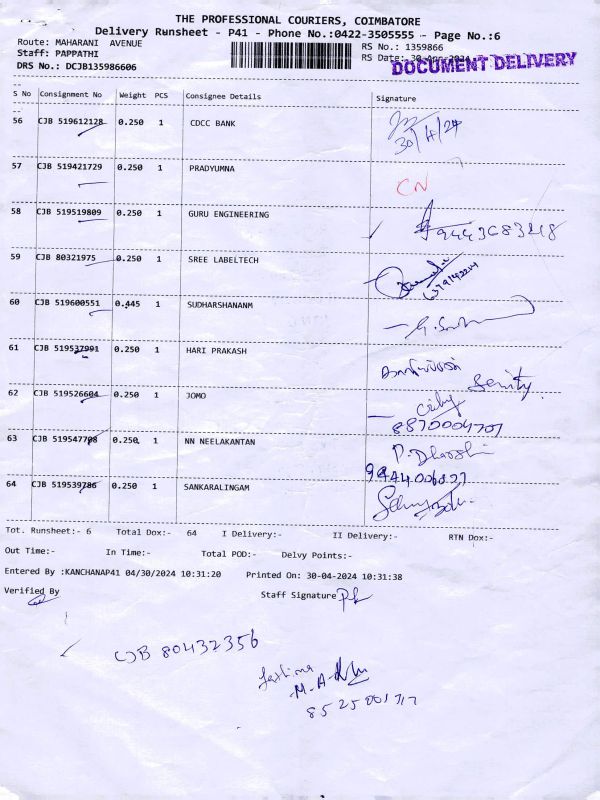 THE PROFESSIONAL COURIERS, COIMBATORE
Delivery Runsheet - P41 - Phone No.:0422-3505555 - Page No.:6
Route: MAHARANI AVENUE
RS No.: 1359866
Staff: PAPPATHI
RS Date: 30-Apr-2024
DRS No.: DCJB135986606
DOCUMENT DELIVERY
S No Consignment No Weight PCS Consignee Details Signature
56 CJB 519612128 0.250 1 CDCC BANK
30/4/24
57 CJB 519421729 0.250 1 PRADYUMNA
CN
58 CJB 519519809 0.250 1 GURU ENGINEERING
59 CJB 80321975 0.250 1 SREE LABELTECH
60 CJB 519600551 0.445 1 SUDHARSHANANM
61 CJB 519537991 0.250 1 HARI PRAKASH
62 CJB 519526604 0.250 1 JOMO
8870004707
63 CJB 519547798 0.250 1 NN NEELAKANTAN
64 CJB 519539786 0.250 1 SANKARALINGAM
Tot. Runsheet:- 6 Total Dox:- 64 I Delivery:- II Delivery:- RTN Dox:-
Out Time:- In Time:- Total POD:- Delvy Points:-
Entered By :KANCHANAP41 04/30/2024 10:31:20 Printed On: 30-04-2024 10:31:38
Verified By Staff Signature
CJB 80432356